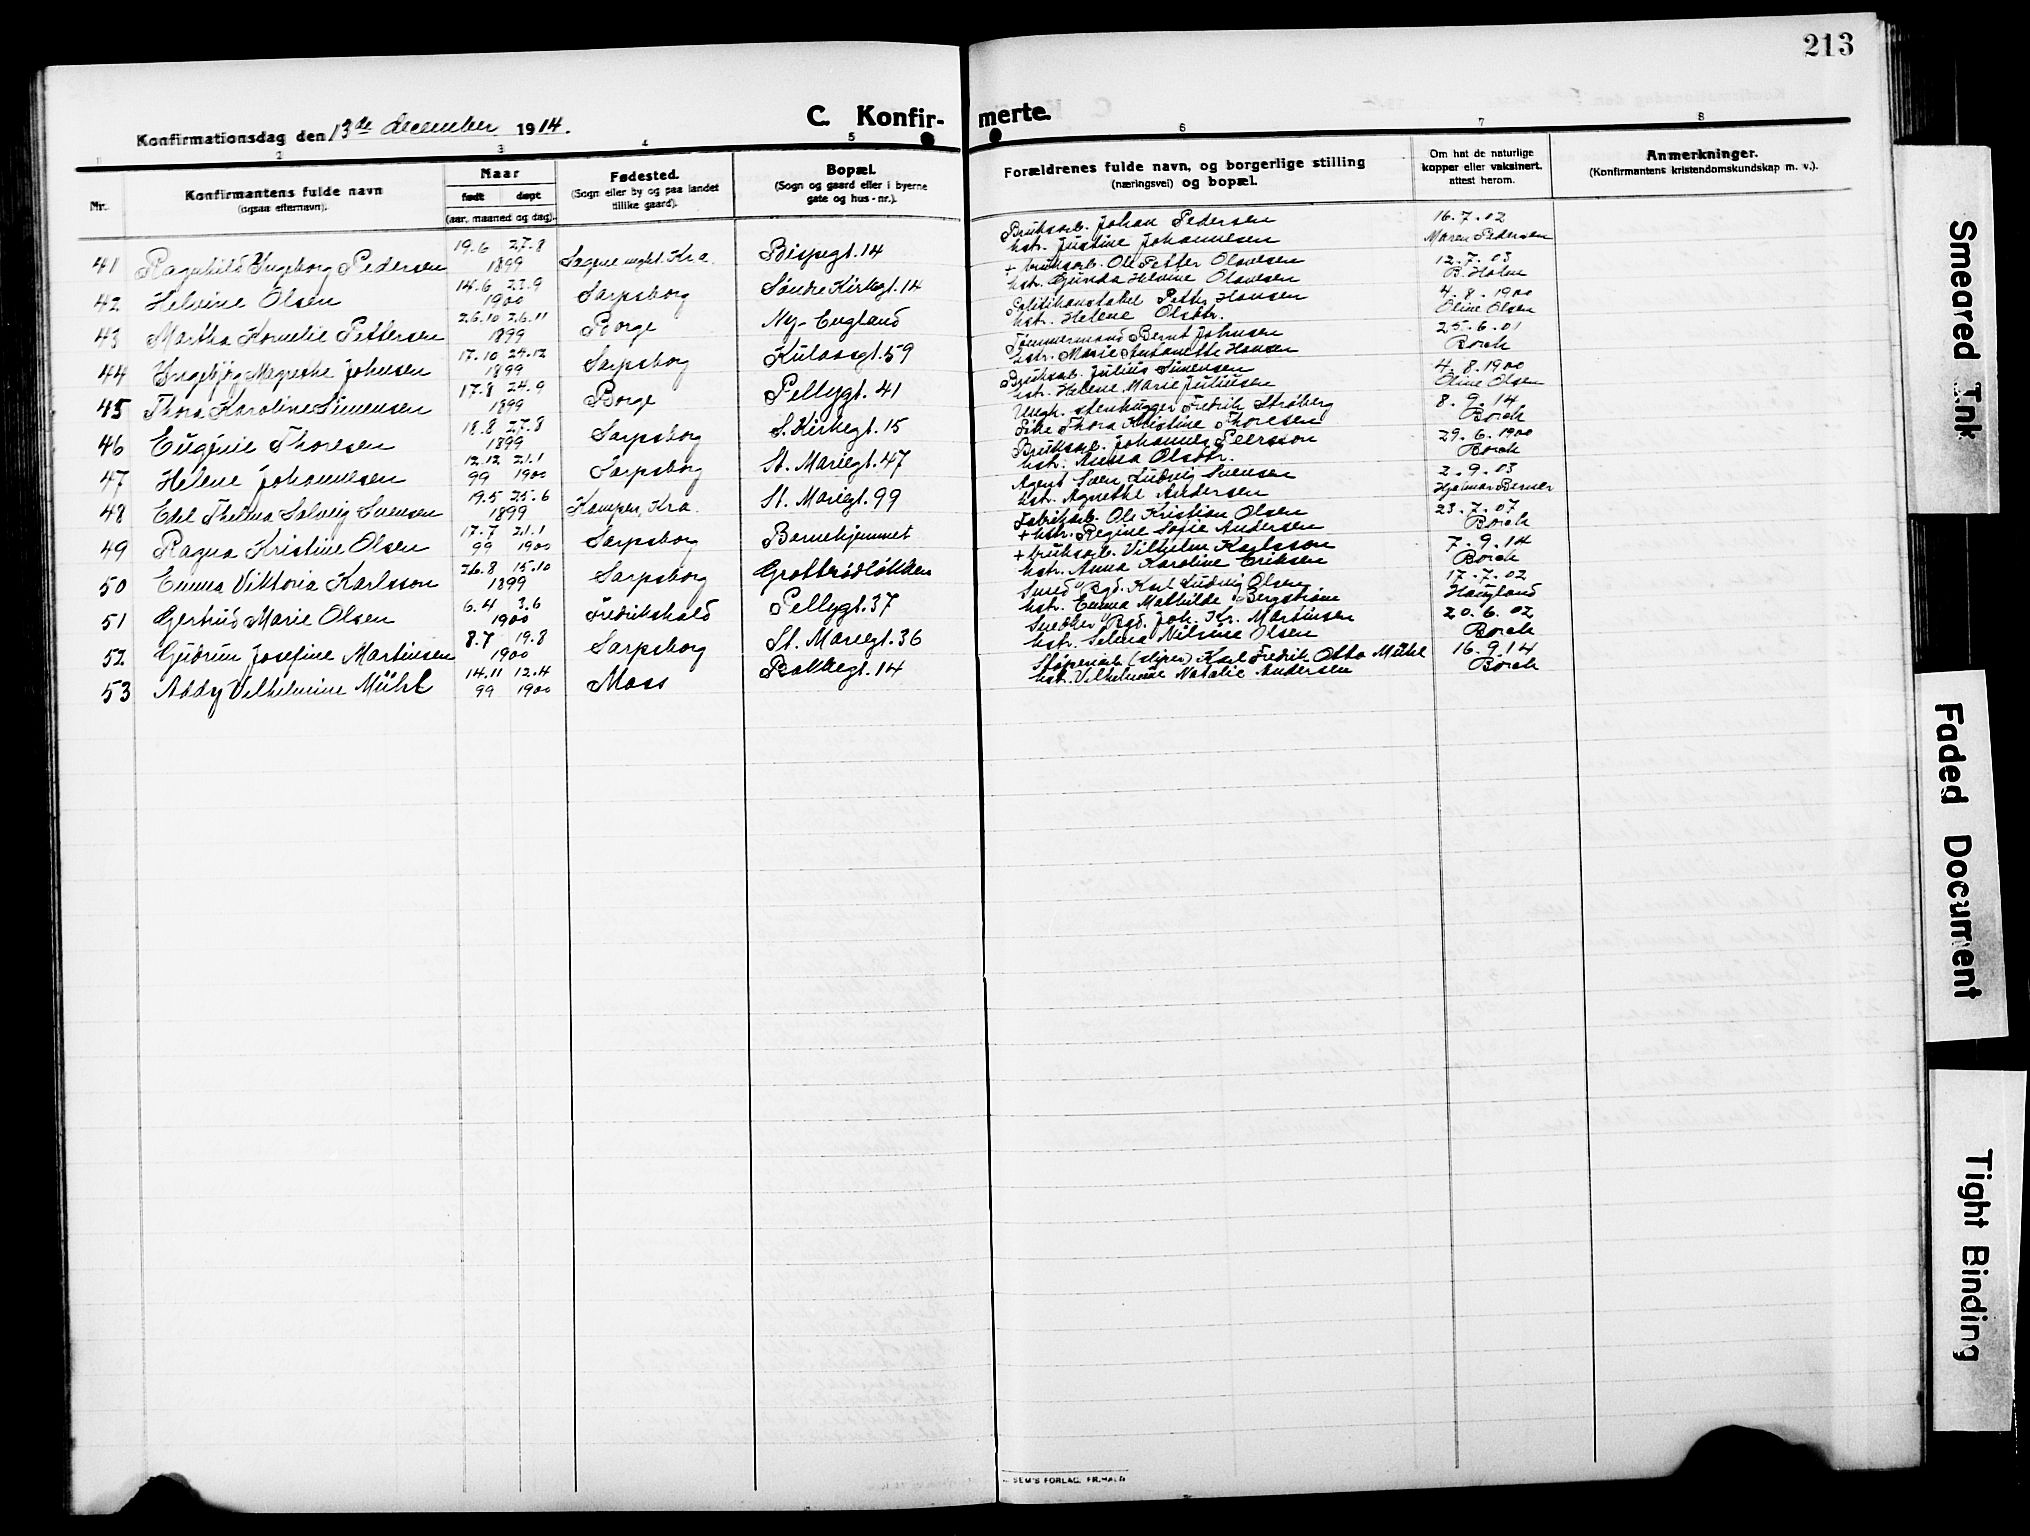 213
C. Konfirmerte.
Konfirmationsdag den 13de december 1914.
1 2 3 4 5 6 7 8
Nr.
Konfirmantens fulde navn
(ogsaa efternavn).
Naar
født døpt
(aar, maaned og dag).
Fødested.
(Sogn eller by og paa landet
tillike gaard).
Bopæl.
(Sogn og gaard eller i byerne
gate og hus-nr.).
Forældrenes fulde navn, og borgerlige stilling
(næringsvei) og bopæl.
Om hat de naturlige
kopper eller vaksinert.
attest herom.
Anmerkninger.
(Konfirmantens kristendomskundskap m. v.).
41 Ragnhild Ingeborg Pedersen 19.6 27.8 1899 Sagene Kra. Bispegt. 14 Bruksarb. Johan Pedersen 16.7.02
hstr. Justine Johannesen Maren Pedersen
42 Helvine Olsen 14.6 23.9 1900 Sarpsborg Søndre Kirkegt. 14 + bruksarb. Ole Petter Olavesen 12.7.03
hstr. Gunda Helvine Olavesen B. Holm
43 Martha Kornelie Pettersen 26.10 26.11 1899 Borge Ny-England Politikonstabel Petter Hansen 4.8.1900
hstr. Helene Olsdtr. Oline Olsen
44 Ingebjøg Magrethe Johnsen 17.10 24.12 1899 Sarpsborg Kulaasgt. 59 Tømmermand Bernt Johnsen 25.6.01
hstr. Marie Antonette Hansen Borch
45 Thora Karoline Simensen 17.8 24.9 1899 Borge Pellygt. 41 Bruksarb. Julius Simensen 4.8.1900
hstr. Helene Marie Juliusen Oline Olsen
46 Eugenie Thoresen 18.8 27.8 1899 Sarpsborg S. Kirkegt. 15 Ungk. stenhugger Fredrik Strøberg 8.9.14
Pike Thora Kristine Thoresen Borch
47 Helene Johannesen 12.12 21.1 99 1900 Sarpsborg St. Mariegt. 47 Bruksarb. Johannes Peersson 29.6.1900
hstr. Anna Olsdtr. Borch
48 Edel Thelma Solveig Svensen 19.5 25.6 1899 Kampen, Kra. St. Mariegt. 99 Agent Sven Ludvig Svensen 2.9.03
hstr. Agnethe Andersen Hjalmar Berner
49 Ragna Kristine Olsen 17.7 21.1 99 1900 Sarpsborg Barnehjemmet Fabrikarb. Ole Kristian Olsen 23.7.07
+ hstr. Regine Sofie Andersen Borch
50 Emma Viktoria Karlsson 26.8 15.10 1899 Sarpsborg Grottrødløkken + bruksarb. Vilhelm Karlsson 7.9.14
hstr. Anna Karoline Eriksen Borch
51 Gertrud Marie Olsen 6.4 3.6 1900 Fredrikshald Pellygt. 37 Smed Bgd. Karl Ludvig Olsen 17.7.02
hstr. Emma Mathilde Bergstrøm Haugland
52 Gudrun Josefine Martinsen 8.7 19.8 1900 Sarpsborg St. Mariegt. 36 Snedker Bgd. Joh. Kr. Martinsen 20.6.02
hstr. Selma Nilsine Olsen Borch
53 Addy Vilhelmine Mühl 14.11 12.4 99 1900 Moss Bakkegt. 14 Støperiarb. (sliper) Karl Fredrik Otto Mühl 16.9.14
hstr. Vilhelmine Natalie Andersen Borch
SEM'S FORLAG, FR.HALD
Smeared Ink
Faded Document
Tight Binding